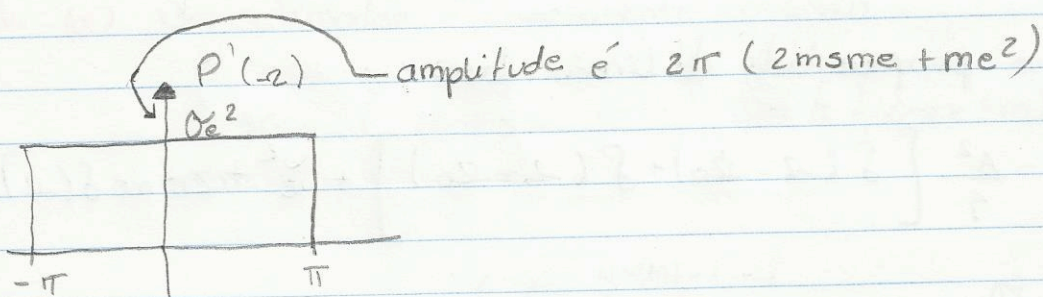 P'(Ω) amplitude é 2π (2msme + me²)
σe²
-π π